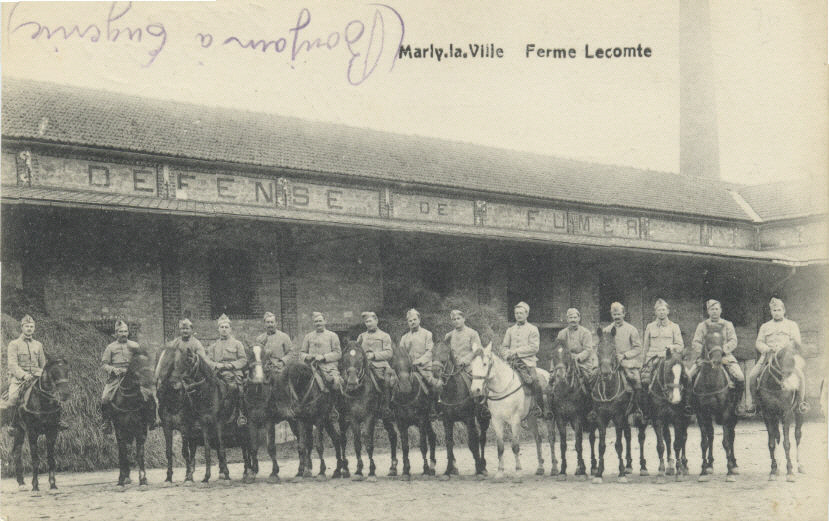 Bonjour à Eugénie
Marly.la.Ville Ferme Lecomte
DEFENSE DE FUMER